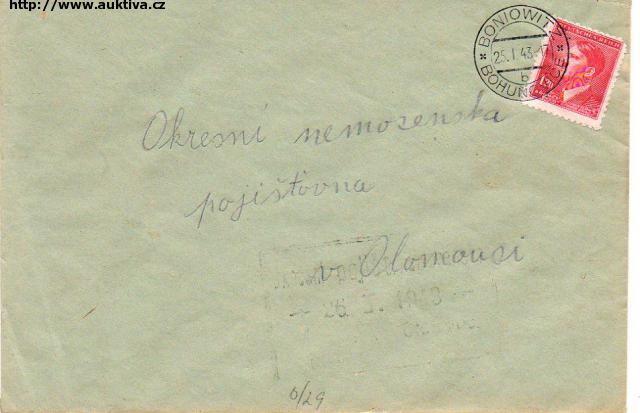 http://www.auktiva.cz
BONIOWITZ
25.I.43-17
b
BOHUŇOVICE
Okresní nemocenská
pojišťovna
v Olomouci
26. I. 1943
6/29